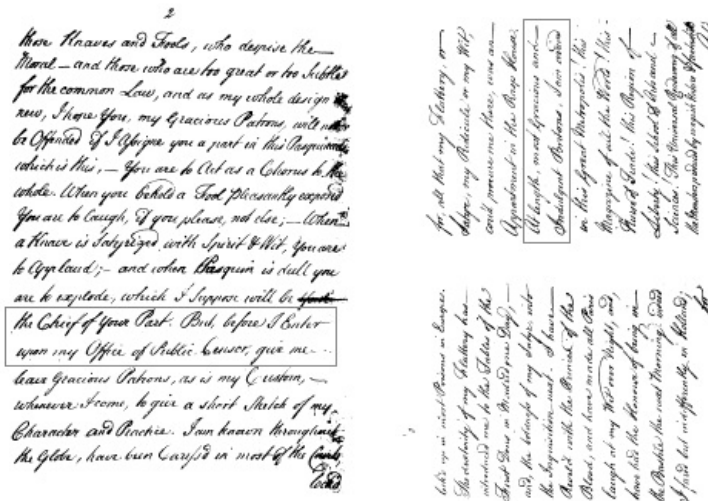 2
those Knaves and Fools, who despise the
Moral – and those who are too great or too Subtle
for the common Law, and as my whole design is
new, I hope You, my Gracious Patrons, will not
be Offended if I Assigne you a part in this Pasquinade
which is this, – You are to Act as a Chorus to the
whole. When you behold a Fool pleasantly expos'd
You are to laugh, if you please, not else; – When
a Knave is Satyrized with Spirit & Wit, you are
to Applaud; – and when Pasquin is dull you
are to explode, which I Suppose will be
the Chief of Your Part. But, before I Enter
upon my Office of Public Censor, give me
leave Gracious Patrons, as is my Custom, –
whenever I come, to give a short Sketch of my
Character and Practice. I am known throughout
the Globe, have been Caress'd in most of the Courts,
Lock'd
lock'd up in most Prisons in Europe.
The dexterity of my Flattery has
introduced me to the Tables of the
First Dons in Madrid one Day, –
and, the boldness of my Satyr into
the Inquisition next. I have
Rival'd with the Princes of the
Blood, and have made all Paris
laugh at my Wit over Night, and
have had the Honour of being in
the Bastile the next Morning.
I fared but indifferently in Holland;
for
for, all that my Flattery or
Satyr, my Ridicule or my Wit,
could procure me there, was an
Apartment in the Rasp House.
At length, most Gracious and
Indulgent Britons, I am arrived
in this Great Metropolis! this
Magazine of all the World! this
Nurse of Trade! this Region of
Liberty! this School of Arts and
Sciences! This Universal Rendezvous of all
the Monsters produced by